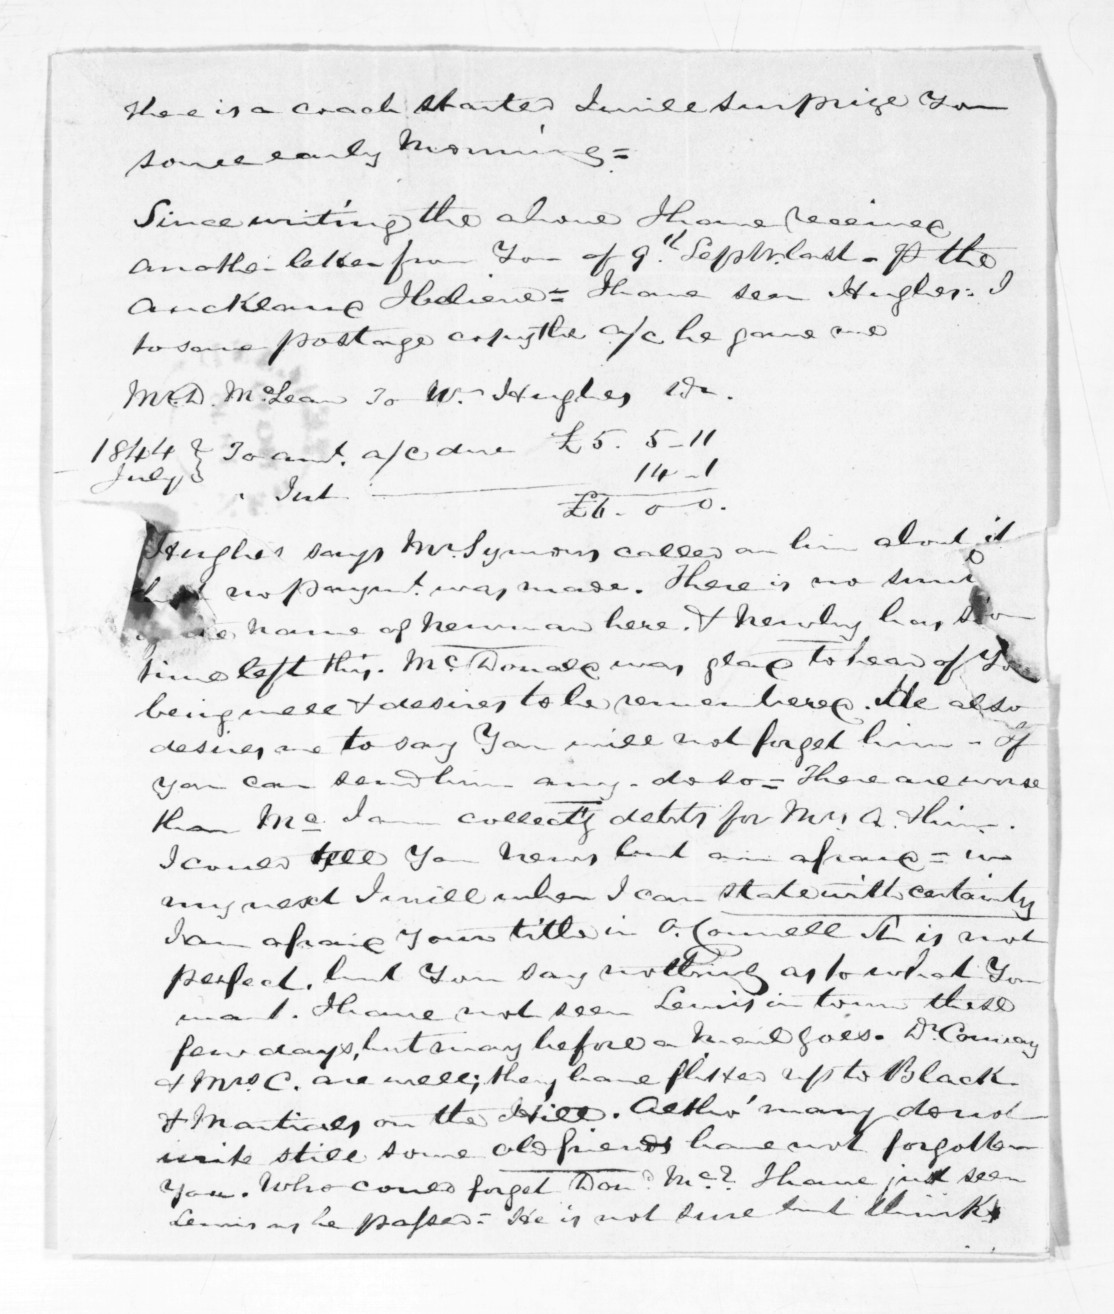 there is a coach started I will surprize You
some early Morning =
Since writing the above I have received
another letter from You of 9th Septr. last - P the
Auckland I believe = I have seen Hughes = I
to save postage copy the a/c he gave me
Mr. D. McLean To Wm. Hughes Dr.
1844 } To amt. a/c due £5. 5-11
July } " Int 14-1
£6. 0 0.
Hughes says Mr. Symons called on him about it
but no paymt. was made. There is no such
name of Newman here. & Newby has some
time left this. McDonald was glad to hear of You
being well & desires to be remembered. He also
desires me to say You will not forget him - If
you can send him any - do so = There are worse
than Mc. I am collectg debts for Mrs. A.
I could tell You News but am afraid = in
my next I will when I can state with certainty
I am afraid Your title in O. Connell St is not
perfect. but You say nothing as to what You
want. I have not seen Lewis in town these
few days, but may before a Mail goes. Dr. Conway
& Mrs. C. are well; they have flitted up to Black
& Martials on the Hill. Altho' many do not
write still some old friends have not forgotten
You. Who could forget Dond. Mc? I have just seen
Lewis as he passed = He is not sure but thinks